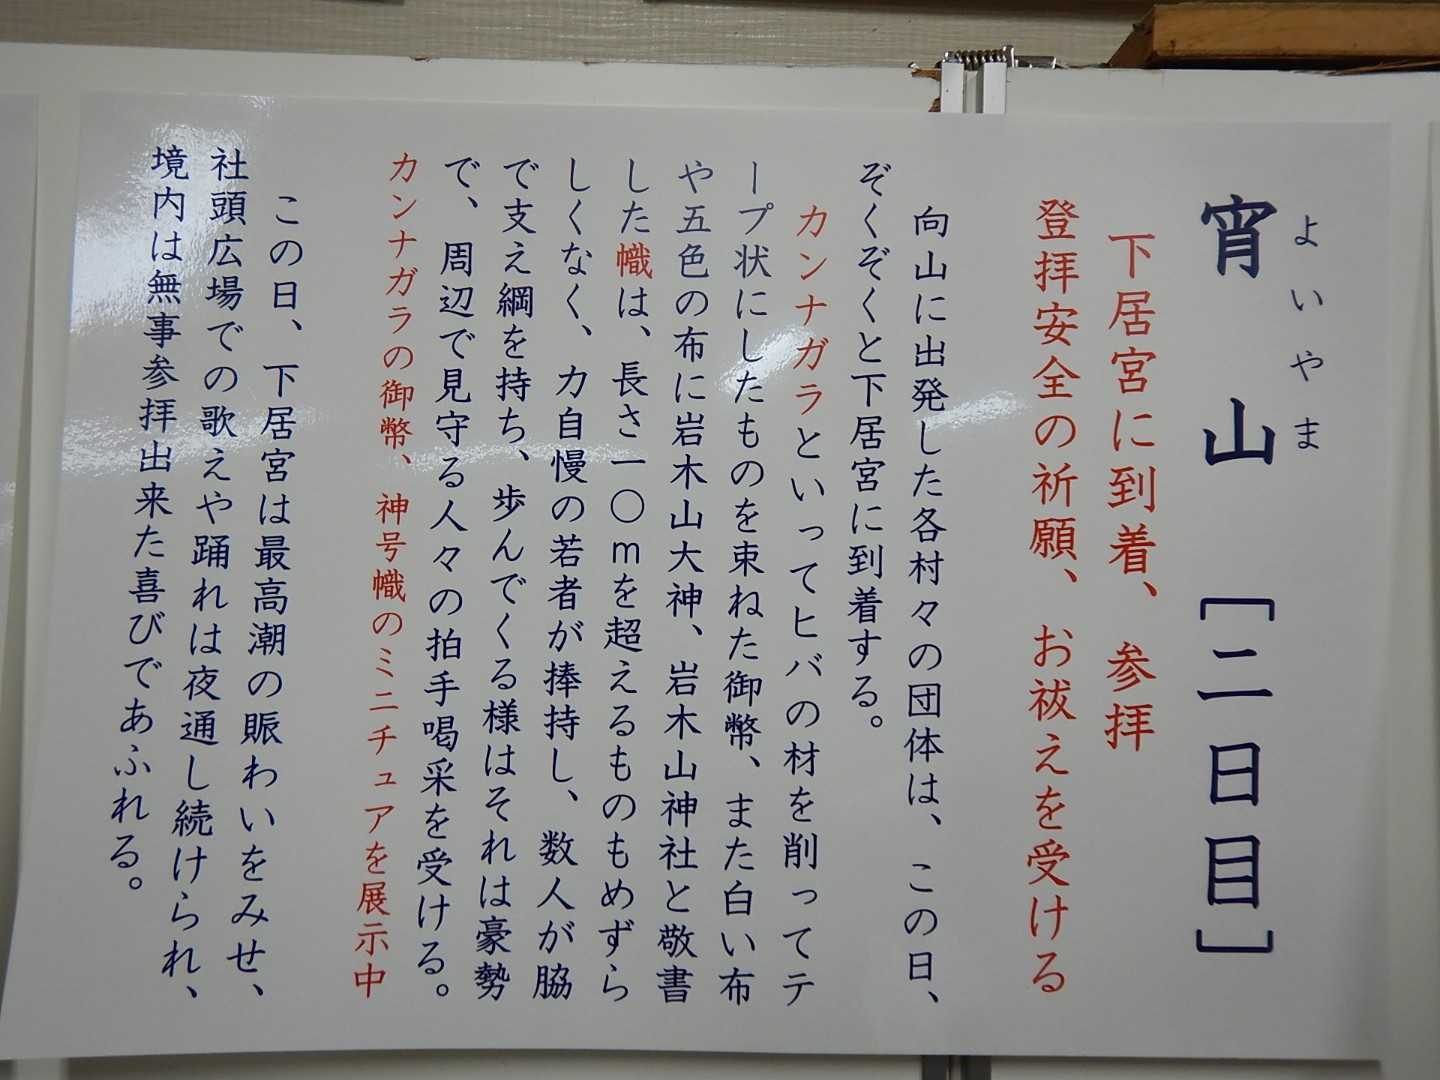 よいやま
宵山［二日目］
下居宮に到着、参拝
登拝安全の祈願、お祓えを受ける
向山に出発した各村々の団体は、この日、
ぞくぞくと下居宮に到着する。
カンナガラといってヒバの材を削ってテ
ープ状にしたものを束ねた御幣、また白い布
や五色の布に岩木山大神、岩木山神社と敬書
した幟は、長さ一〇ｍを超えるものもめずら
しくなく、力自慢の若者が捧持し、数人が脇
で支え綱を持ち、歩んでくる様はそれは豪勢
で、周辺で見守る人々の拍手喝采を受ける。
カンナガラの御幣、神号幟のミニチュアを展示中
この日、下居宮は最高潮の賑わいをみせ、
社頭広場での歌えや踊れは夜通し続けられ、
境内は無事参拝出来た喜びであふれる。